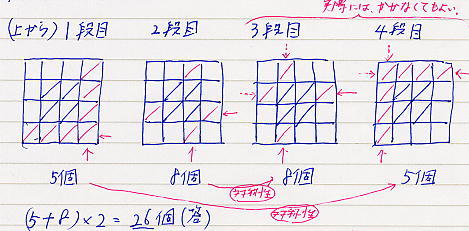 実際には、かかなくてもよい。
(上から) 1段目 2段目 3段目 4段目
5個 8個 8個 5個
対称性
対称性
(5+8)×2=26個(答)